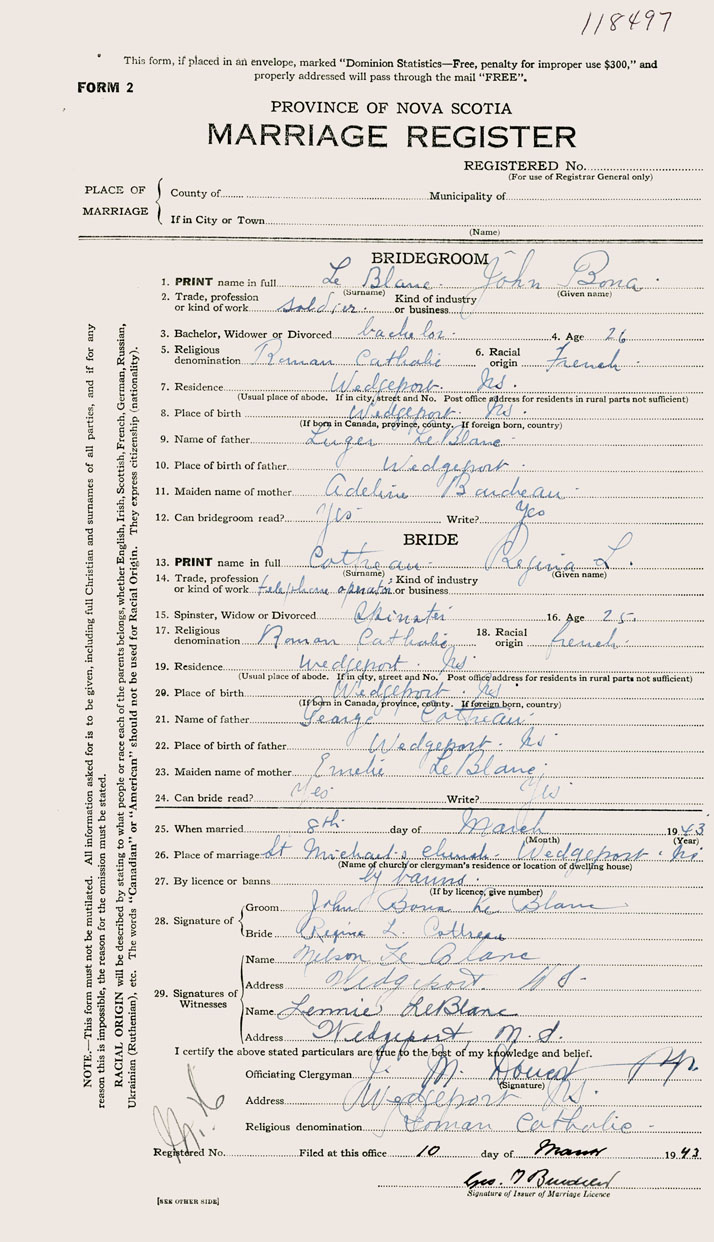 118497
This form, if placed in an envelope, marked "Dominion Statistics—Free, penalty for improper use $300," and
properly addressed will pass through the mail "FREE".
FORM 2
PROVINCE OF NOVA SCOTIA
MARRIAGE REGISTER
REGISTERED No.
(For use of Registrar General only)
PLACE OF MARRIAGE
County of Municipality of
If in City or Town
(Name)
BRIDEGROOM
1. PRINT name in full Le Blanc John Bona
(Surname) (Given name)
2. Trade, profession or kind of work soldier Kind of industry or business
3. Bachelor, Widower or Divorced bachelor 4. Age 26
5. Religious denomination Roman Catholic 6. Racial origin French
7. Residence Wedgeport Ns.
(Usual place of abode. If in city, street and No. Post office address for residents in rural parts not sufficient)
8. Place of birth Wedgeport Ns.
(If born in Canada, province, county. If foreign born, country)
9. Name of father Luger LeBlanc
10. Place of birth of father Wedgeport
11. Maiden name of mother Adeline Boudreau
12. Can bridegroom read? Yes Write? Yes
BRIDE
13. PRINT name in full Cottreau Regina L.
(Surname) (Given name)
14. Trade, profession or kind of work telephone operator Kind of industry or business
15. Spinster, Widow or Divorced Spinster 16. Age 25
17. Religious denomination Roman Catholic 18. Racial origin french
19. Residence Wedgeport Ns
(Usual place of abode. If in city, street and No. Post office address for residents in rural parts not sufficient)
20. Place of birth Wedgeport Ns
(If born in Canada, province, county. If foreign born, country)
21. Name of father George Cottreau
22. Place of birth of father Wedgeport Ns
23. Maiden name of mother Emelie LeBlanc
24. Can bride read? Yes Write? Yes
25. When married 8th day of March 1943
(Month) (Year)
26. Place of marriage St Michael's Church Wedgeport Ns
(Name of church or clergyman's residence or location of dwelling house)
27. By licence or banns by banns
(If by licence, give number)
28. Signature of
Groom John Bona Le Blanc
Bride Regina L. Cottreau
29. Signatures of Witnesses
Name Nelson Le Blanc
Address Wedgeport. N S.
Name Lennie LeBlanc
Address Wedgeport, N.S.
I certify the above stated particulars are true to the best of my knowledge and belief.
Officiating Clergyman J. M.
(Signature)
Address Wedgeport Ns.
Religious denomination Roman Catholic
Registered No. Filed at this office 10 day of March 1943
Geo.
Signature of Issuer of Marriage Licence
[SEE OTHER SIDE]
NOTE.—This form must not be mutilated. All information asked for is to be given, including full Christian and surnames of all parties, and if for any
reason this is impossible, the reason for the omission must be stated.
RACIAL ORIGIN will be described by stating to what people or race each of the parents belongs, whether English, Irish, Scottish, French, German, Russian,
Ukrainian (Ruthenian), etc. The words "Canadian" or "American" should not be used for Racial Origin. They express citizenship (nationality).